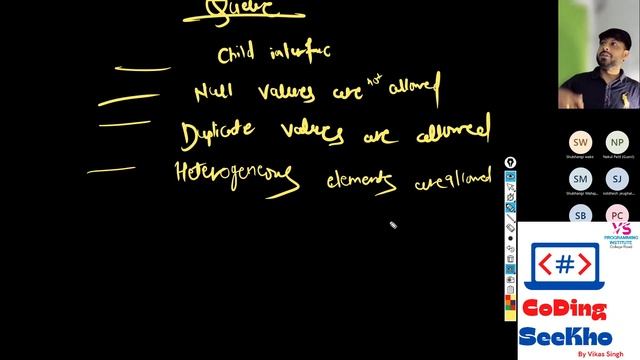 Queue
Child interface
Null values are not allowed
Duplicate values are allowed
Heterogeneous elements are allowed
SW
NP
Nakul Patil (Guest)
SM
SJ
SB
PC
VS
PROGRAMMING
INSTITUTE
College Road
<#>
CoDing
SeeKho
By Vikas Singh